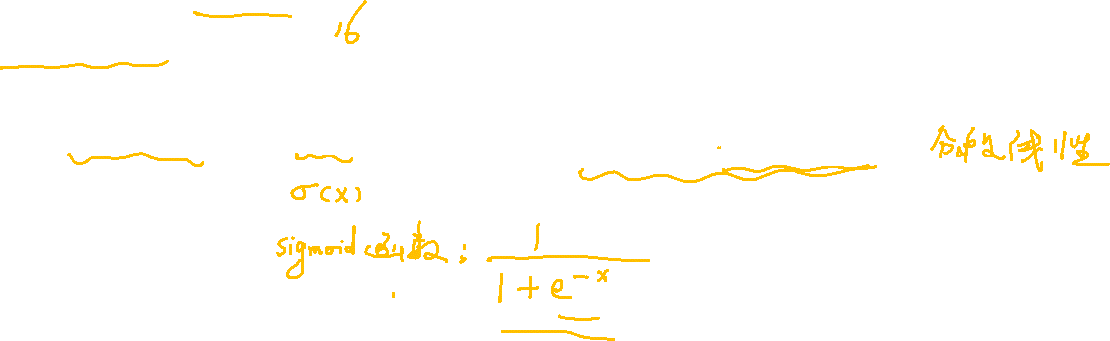 16
分段线性
σ(x)
sigmoid函数: 1/(1+e^-x)